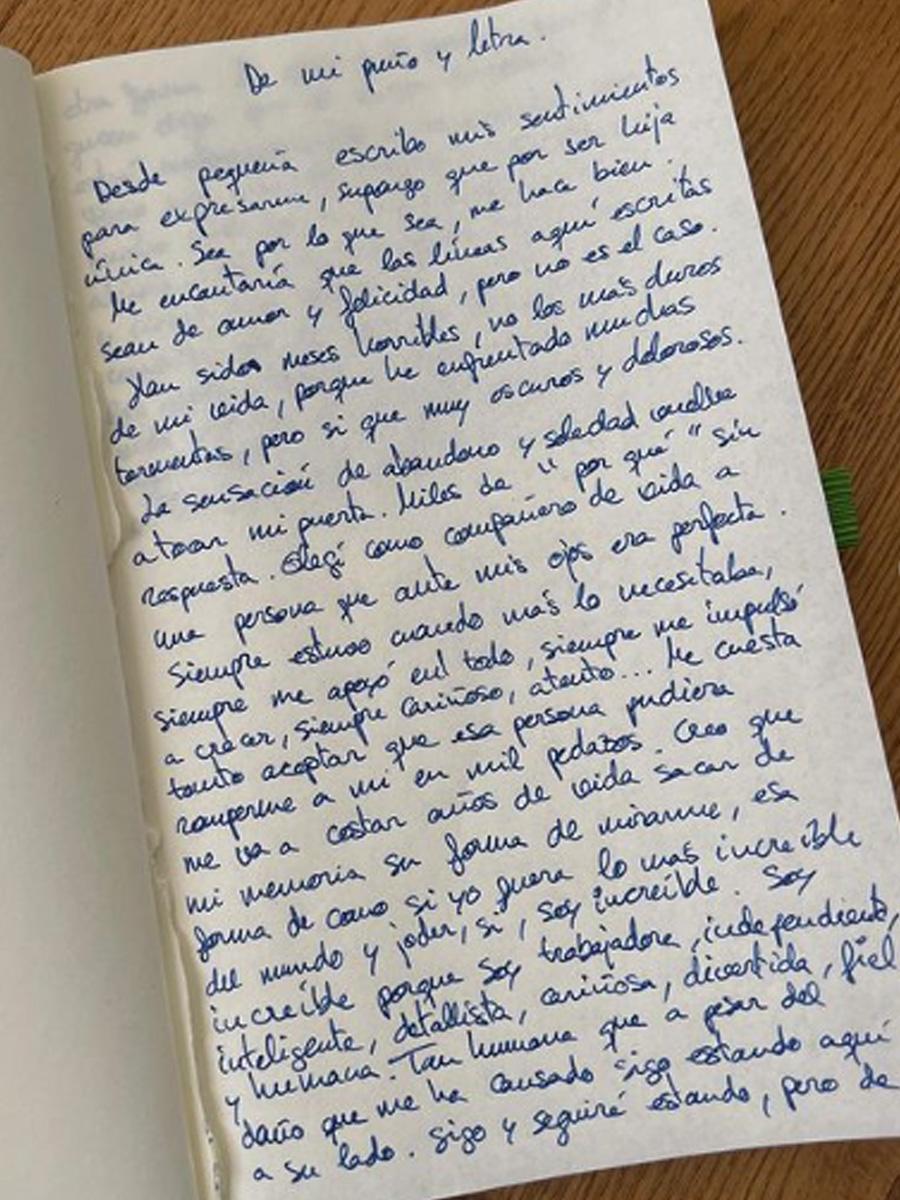 De mi puño y letra.
Desde pequeña escribo mis sentimientos
para expresarme, supongo que por ser hija
única. Sea por lo que sea, me hace bien.
Me encantaría que las líneas aquí escritas
sean de amor y felicidad, pero no es el caso.
Han sidos meses horribles, no los más duros
de mi vida, porque he enfrentado muchas
tormentas, pero si que muy oscuros y dolorosos.
La sensación de abandono y soledad vuelve
a tocar mi puerta. Miles de "por qué" sin
respuesta. Elegí como compañero de vida a
una persona que ante mis ojos era perfecta.
Siempre estuvo cuando más lo necesitaba,
siempre me apoyó en todo, siempre me impulsó
a crecer, siempre cariñoso, atento... Me cuesta
tanto aceptar que esa persona pudiera
romperme a mi en mil pedazos. Creo que
me va a costar años de vida sacar de
mi memoria su forma de mirarme, esa
forma de como si yo fuera lo más increíble
del mundo y joder, si, soy increíble. Soy
increíble porque soy trabajadora, independiente,
inteligente, detallista, cariñosa, divertida, fiel
y humana. Tan humana que a pesar del
daño que me ha causado sigo estando aquí
a su lado. Sigo y seguiré estando, pero de